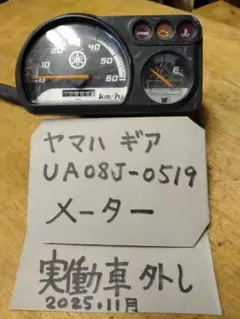 SPEED
20
40
60
0
60
km/h
E
ヤマハ ギア
UA08J-0519
メーター
実働車外し
2025.11月